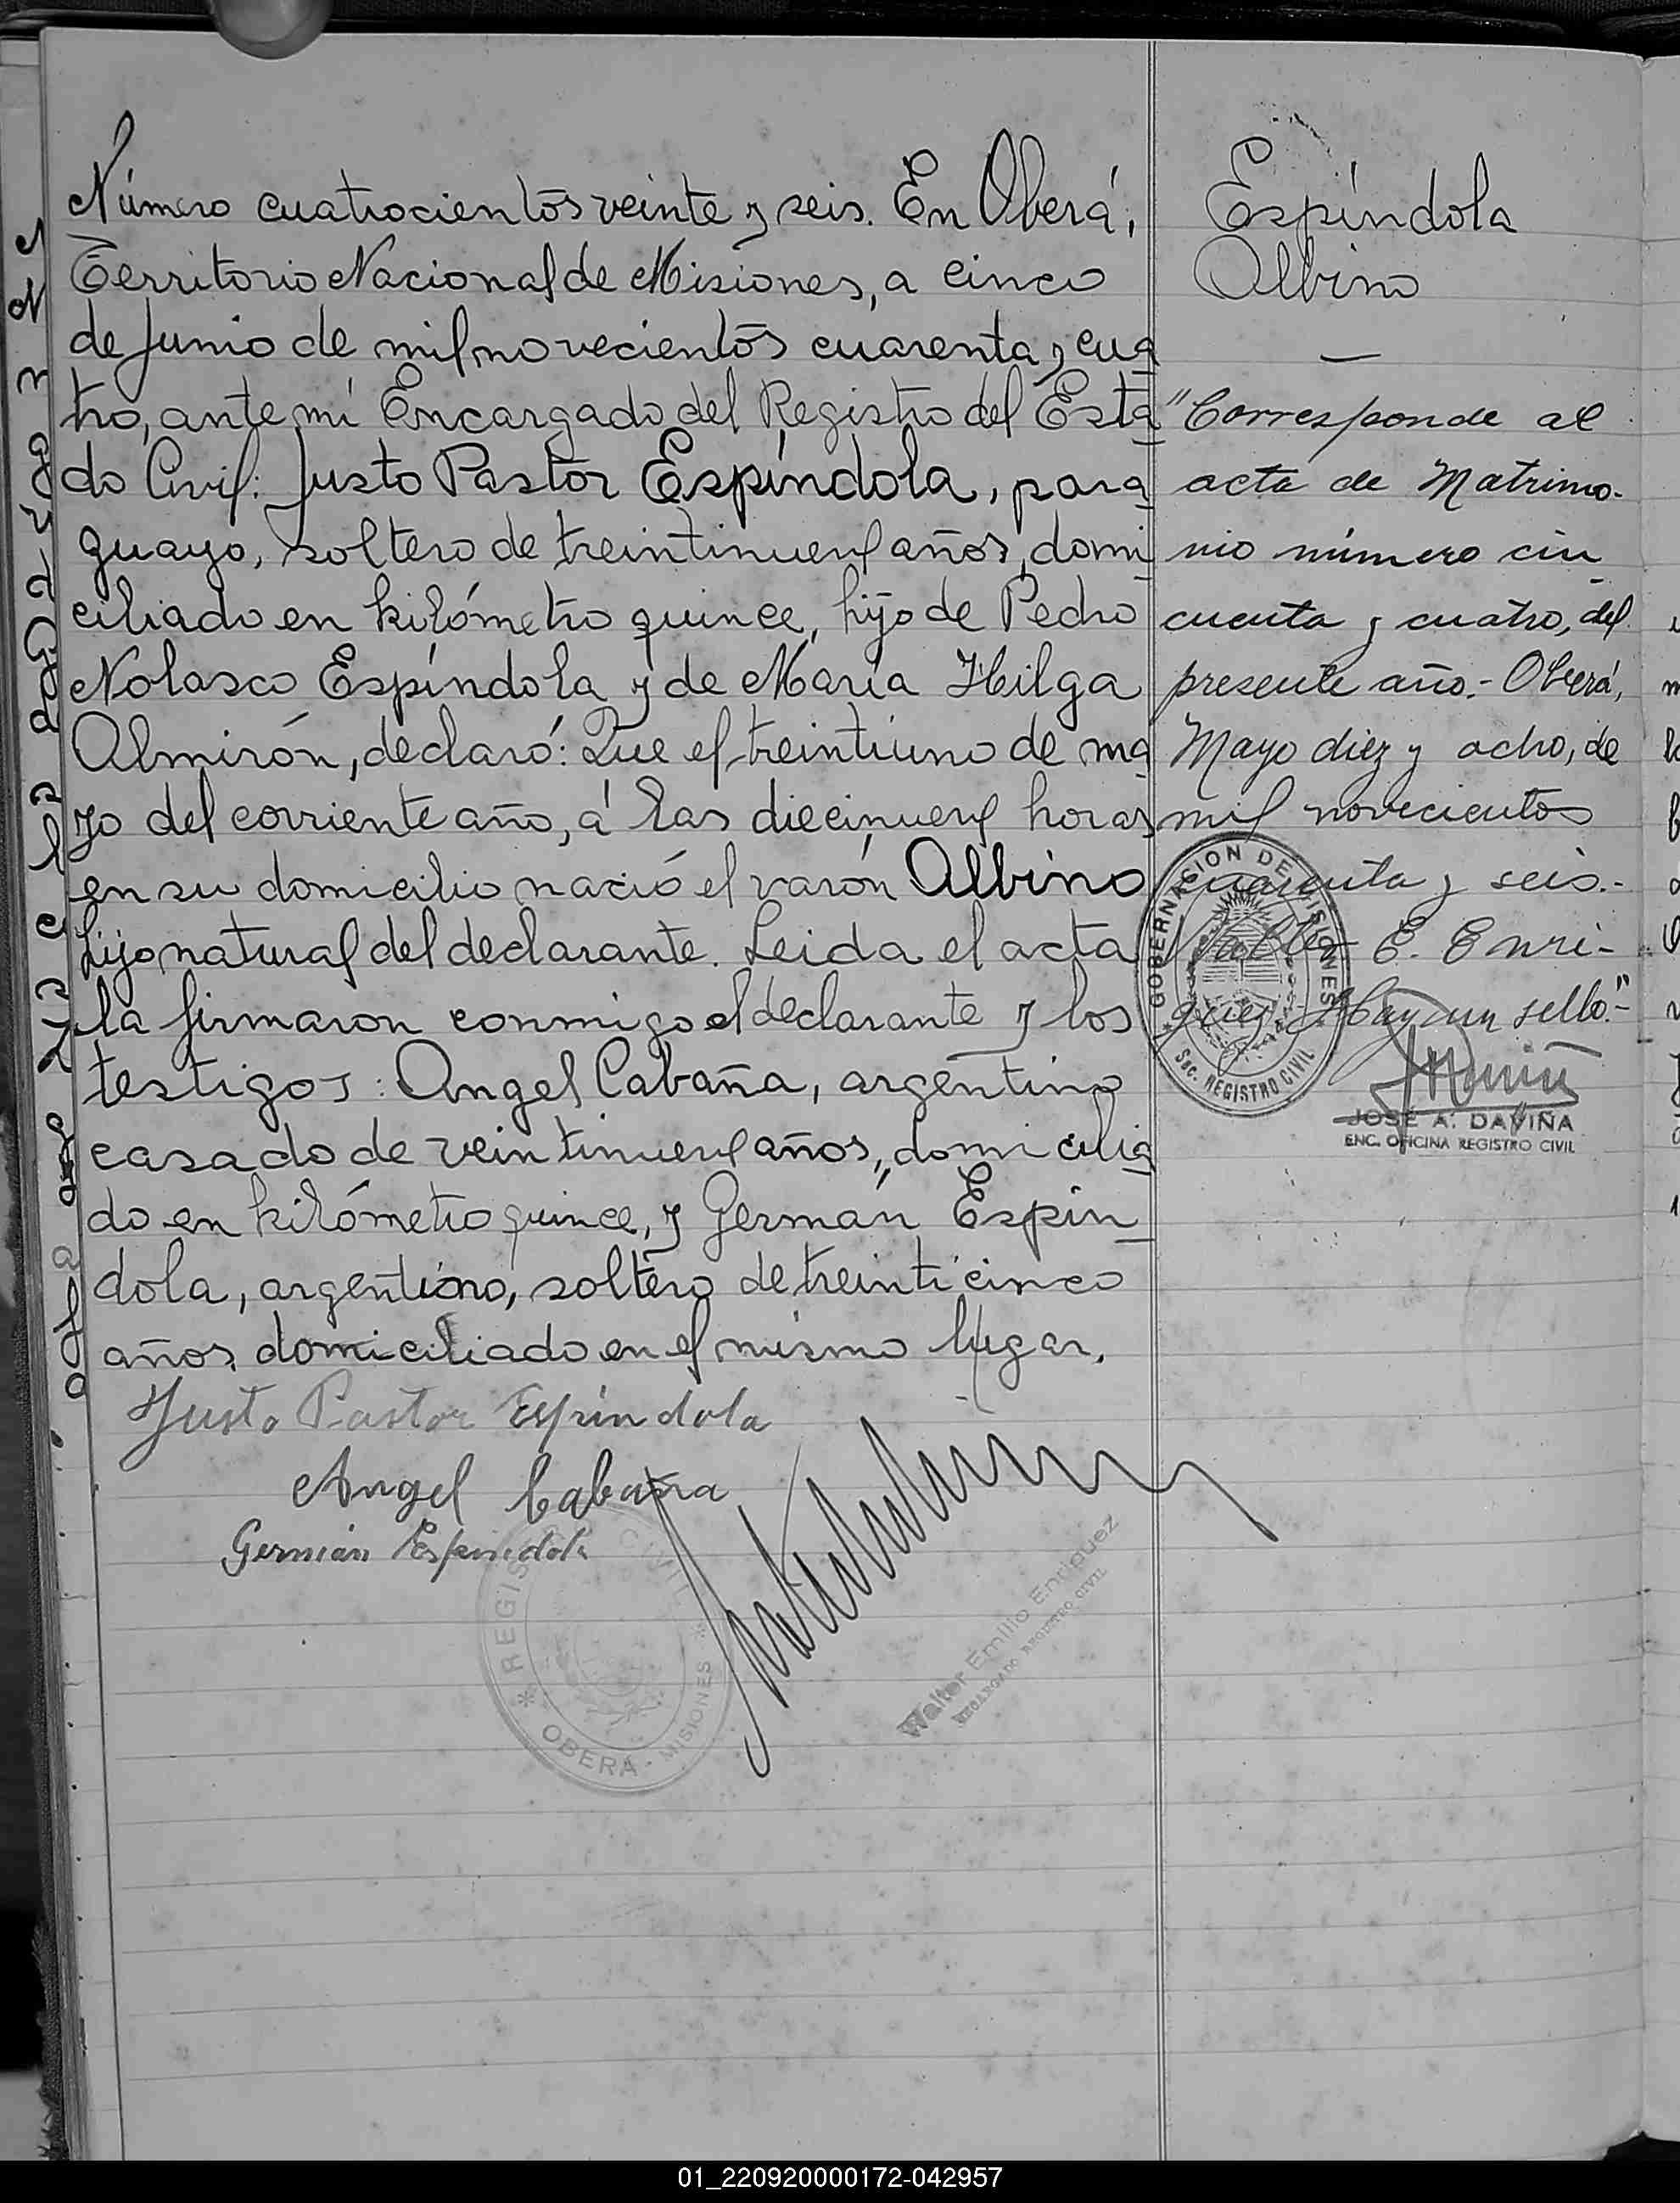 Número cuatrocientos veinte y seis. En Oberá,
Territorio Nacional de Misiones, a cinco
de junio de mil novecientos cuarenta y cua
tro, ante mí Encargado del Registro del Esta
do Civil: Justo Pastor Espíndola, para
guayo, soltero de treintinueve años, domi
ciliado en kilómetro quince, hijo de Pedro
Nolasco Espíndola y de María Hilga
Almirón, declaró: Que el treintiuno de ma
yo del corriente año, á las diecinueve horas
en su domicilio nació el varón Albino
hijo natural del declarante. Leida el acta
la firmaron conmigo el declarante y los
testigos: Angel Cabaña, argentino
casado de veintinueve años, domicilia
do en kilómetro quince, y Germán Espín
dola, argentino, soltero de treinticinco
años, domiciliado en el mismo lugar.
Justo Pastor Espíndola
Angel Cabaña
Germán Espindola
REGISTRO CIVIL
* OBERÁ - MISIONES *
Walter Emilio Enriquez
ENCARGADO REGISTRO CIVIL
Espíndola
Albino
"Corresponde al
acta de Matrimo-
nio número cin
cuenta y cuatro, del
presente año.- Oberá,
Mayo diez y ocho, de
mil novecientos
cuarenta y seis.-
Walter E. Enri-
quez. Hay un sello.-"
GOBERNACION DE MISIONES
Sec. REGISTRO CIVIL
JOSÉ A. DAVIÑA
ENC. OFICINA REGISTRO CIVIL
01_220920000172-042957